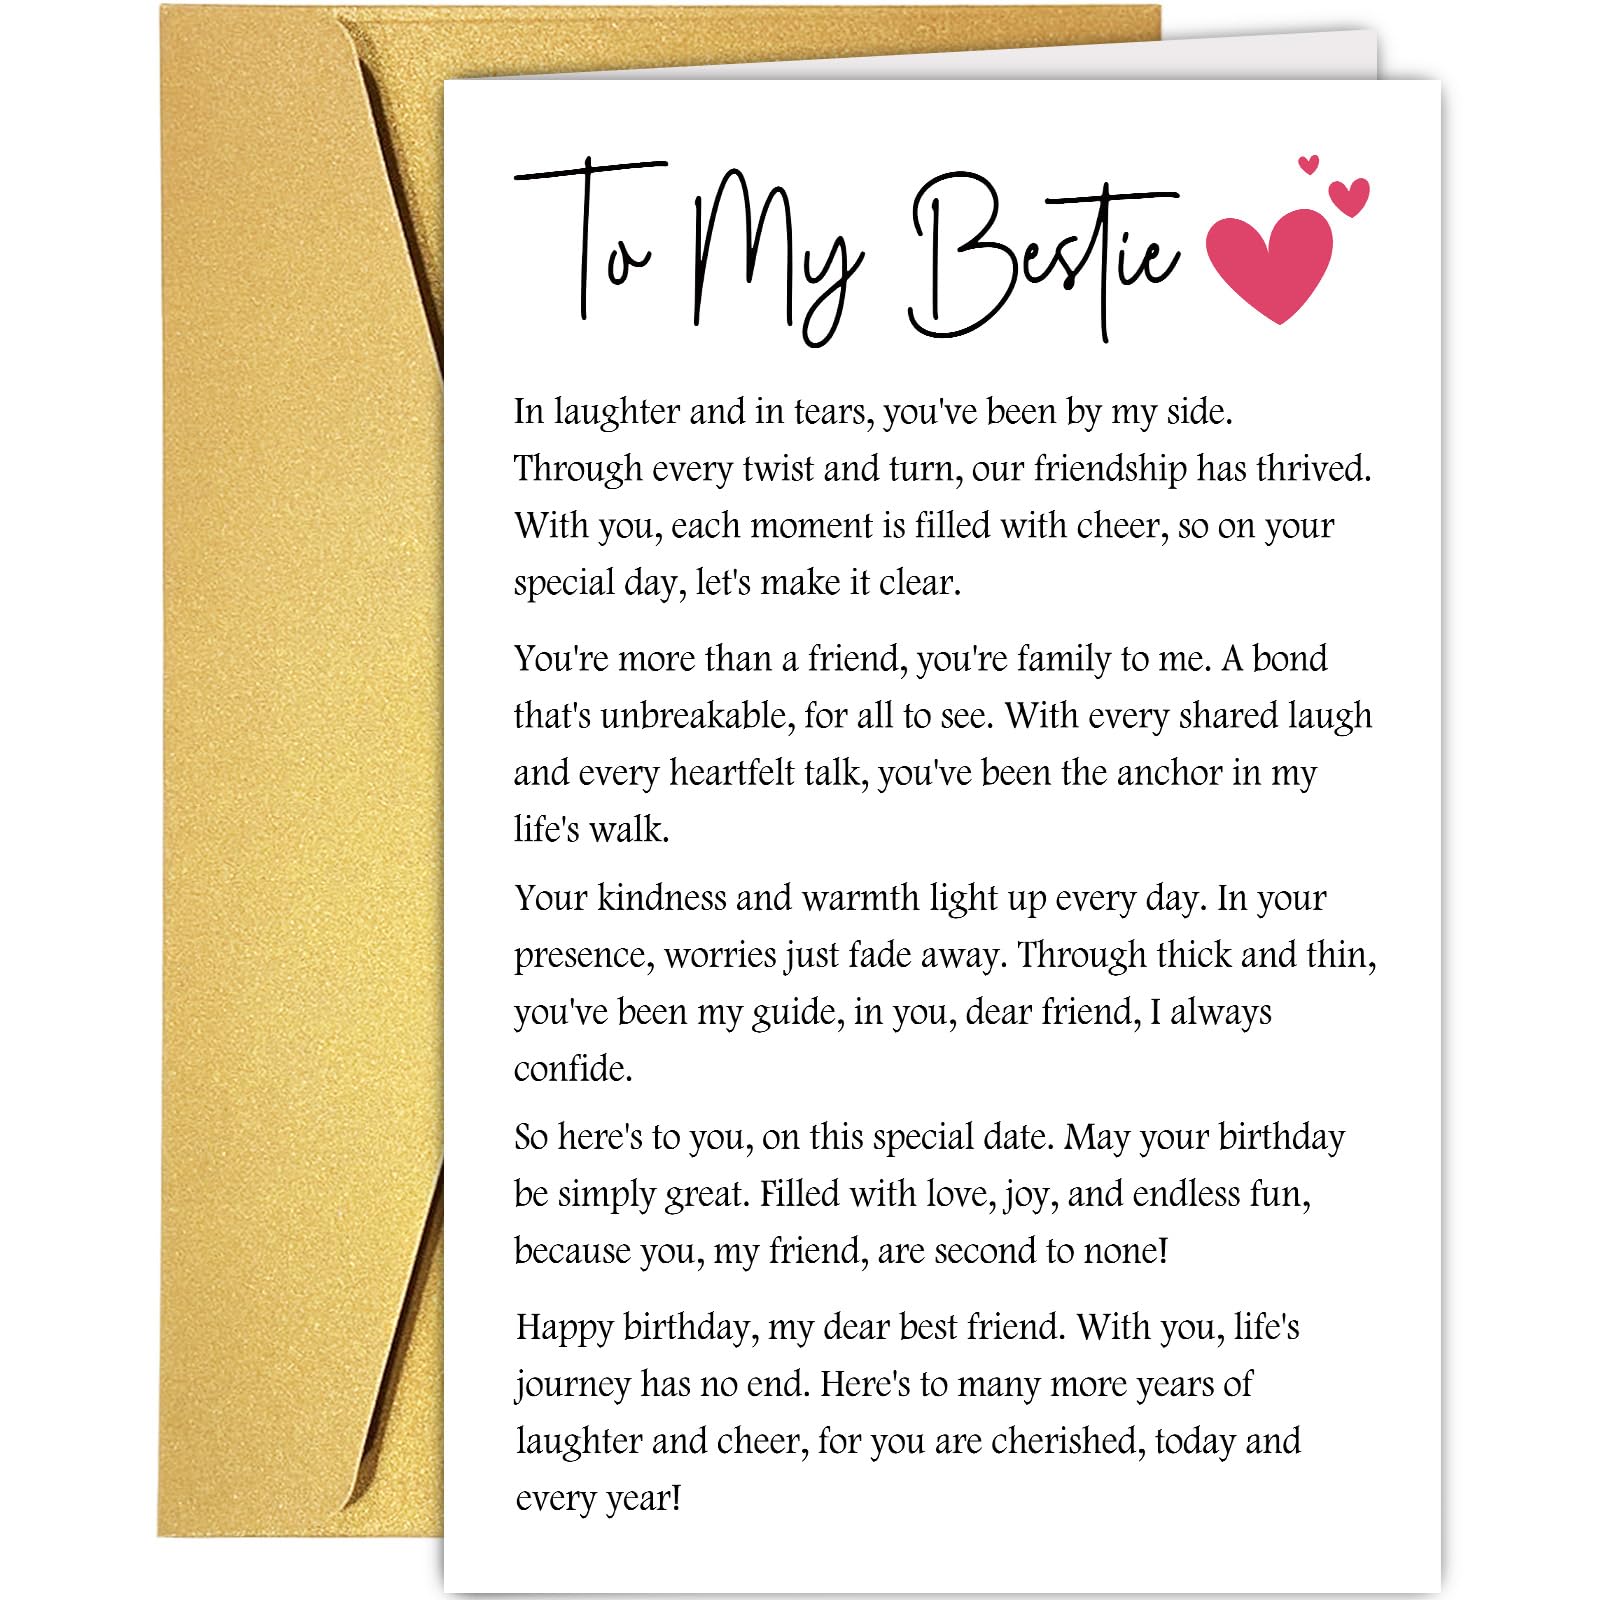 To My Bestie
In laughter and in tears, you've been by my side.
Through every twist and turn, our friendship has thrived.
With you, each moment is filled with cheer, so on your
special day, let's make it clear.
You're more than a friend, you're family to me. A bond
that's unbreakable, for all to see. With every shared laugh
and every heartfelt talk, you've been the anchor in my
life's walk.
Your kindness and warmth light up every day. In your
presence, worries just fade away. Through thick and thin,
you've been my guide, in you, dear friend, I always
confide.
So here's to you, on this special date. May your birthday
be simply great. Filled with love, joy, and endless fun,
because you, my friend, are second to none!
Happy birthday, my dear best friend. With you, life's
journey has no end. Here's to many more years of
laughter and cheer, for you are cherished, today and
every year!